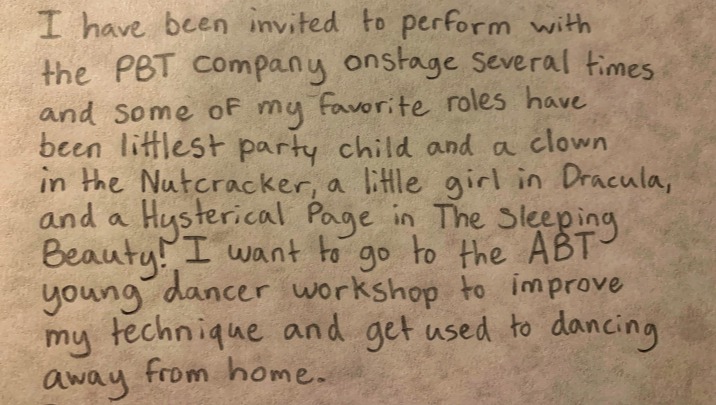 I have been invited to perform with
the PBT company onstage several times
and some of my favorite roles have
been littlest party child and a clown
in the Nutcracker, a little girl in Dracula,
and a Hysterical Page in The Sleeping
Beauty! I want to go to the ABT
young dancer workshop to improve
my technique and get used to dancing
away from home.